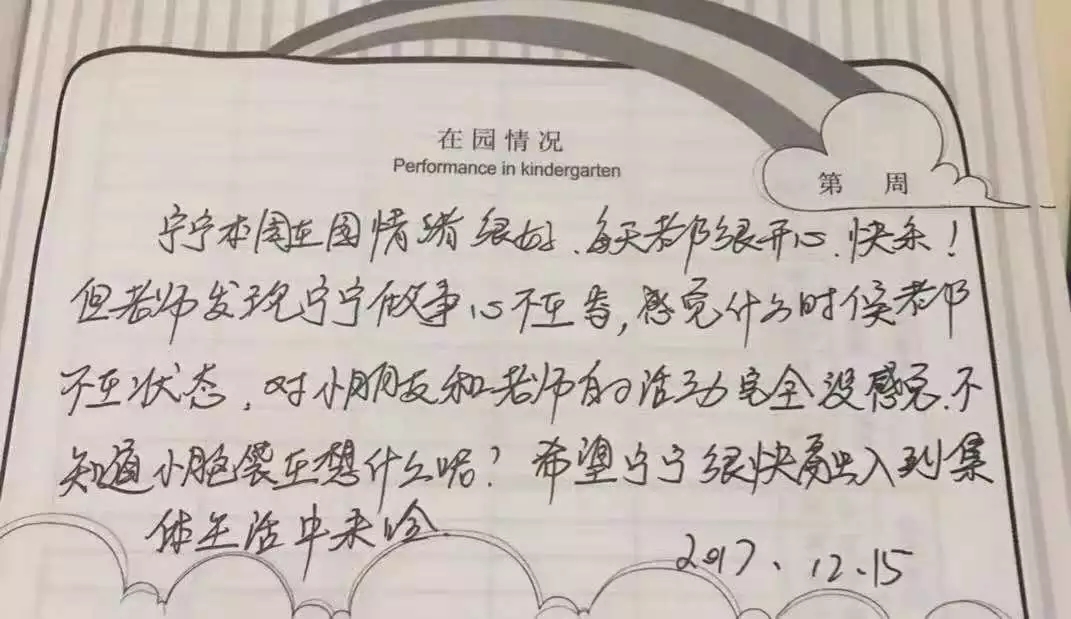 在园情况
Performance in kindergarten
第 周
宁宁本周在园情绪很好、每天都很开心、快乐！
但老师发现宁宁做事心不在焉，感觉什么时候都
不在状态，对小朋友和老师的活动完全没感觉、不
知道小脑袋在想什么呢？希望宁宁很快融入到集
体生活中来哈、
2017、12、15